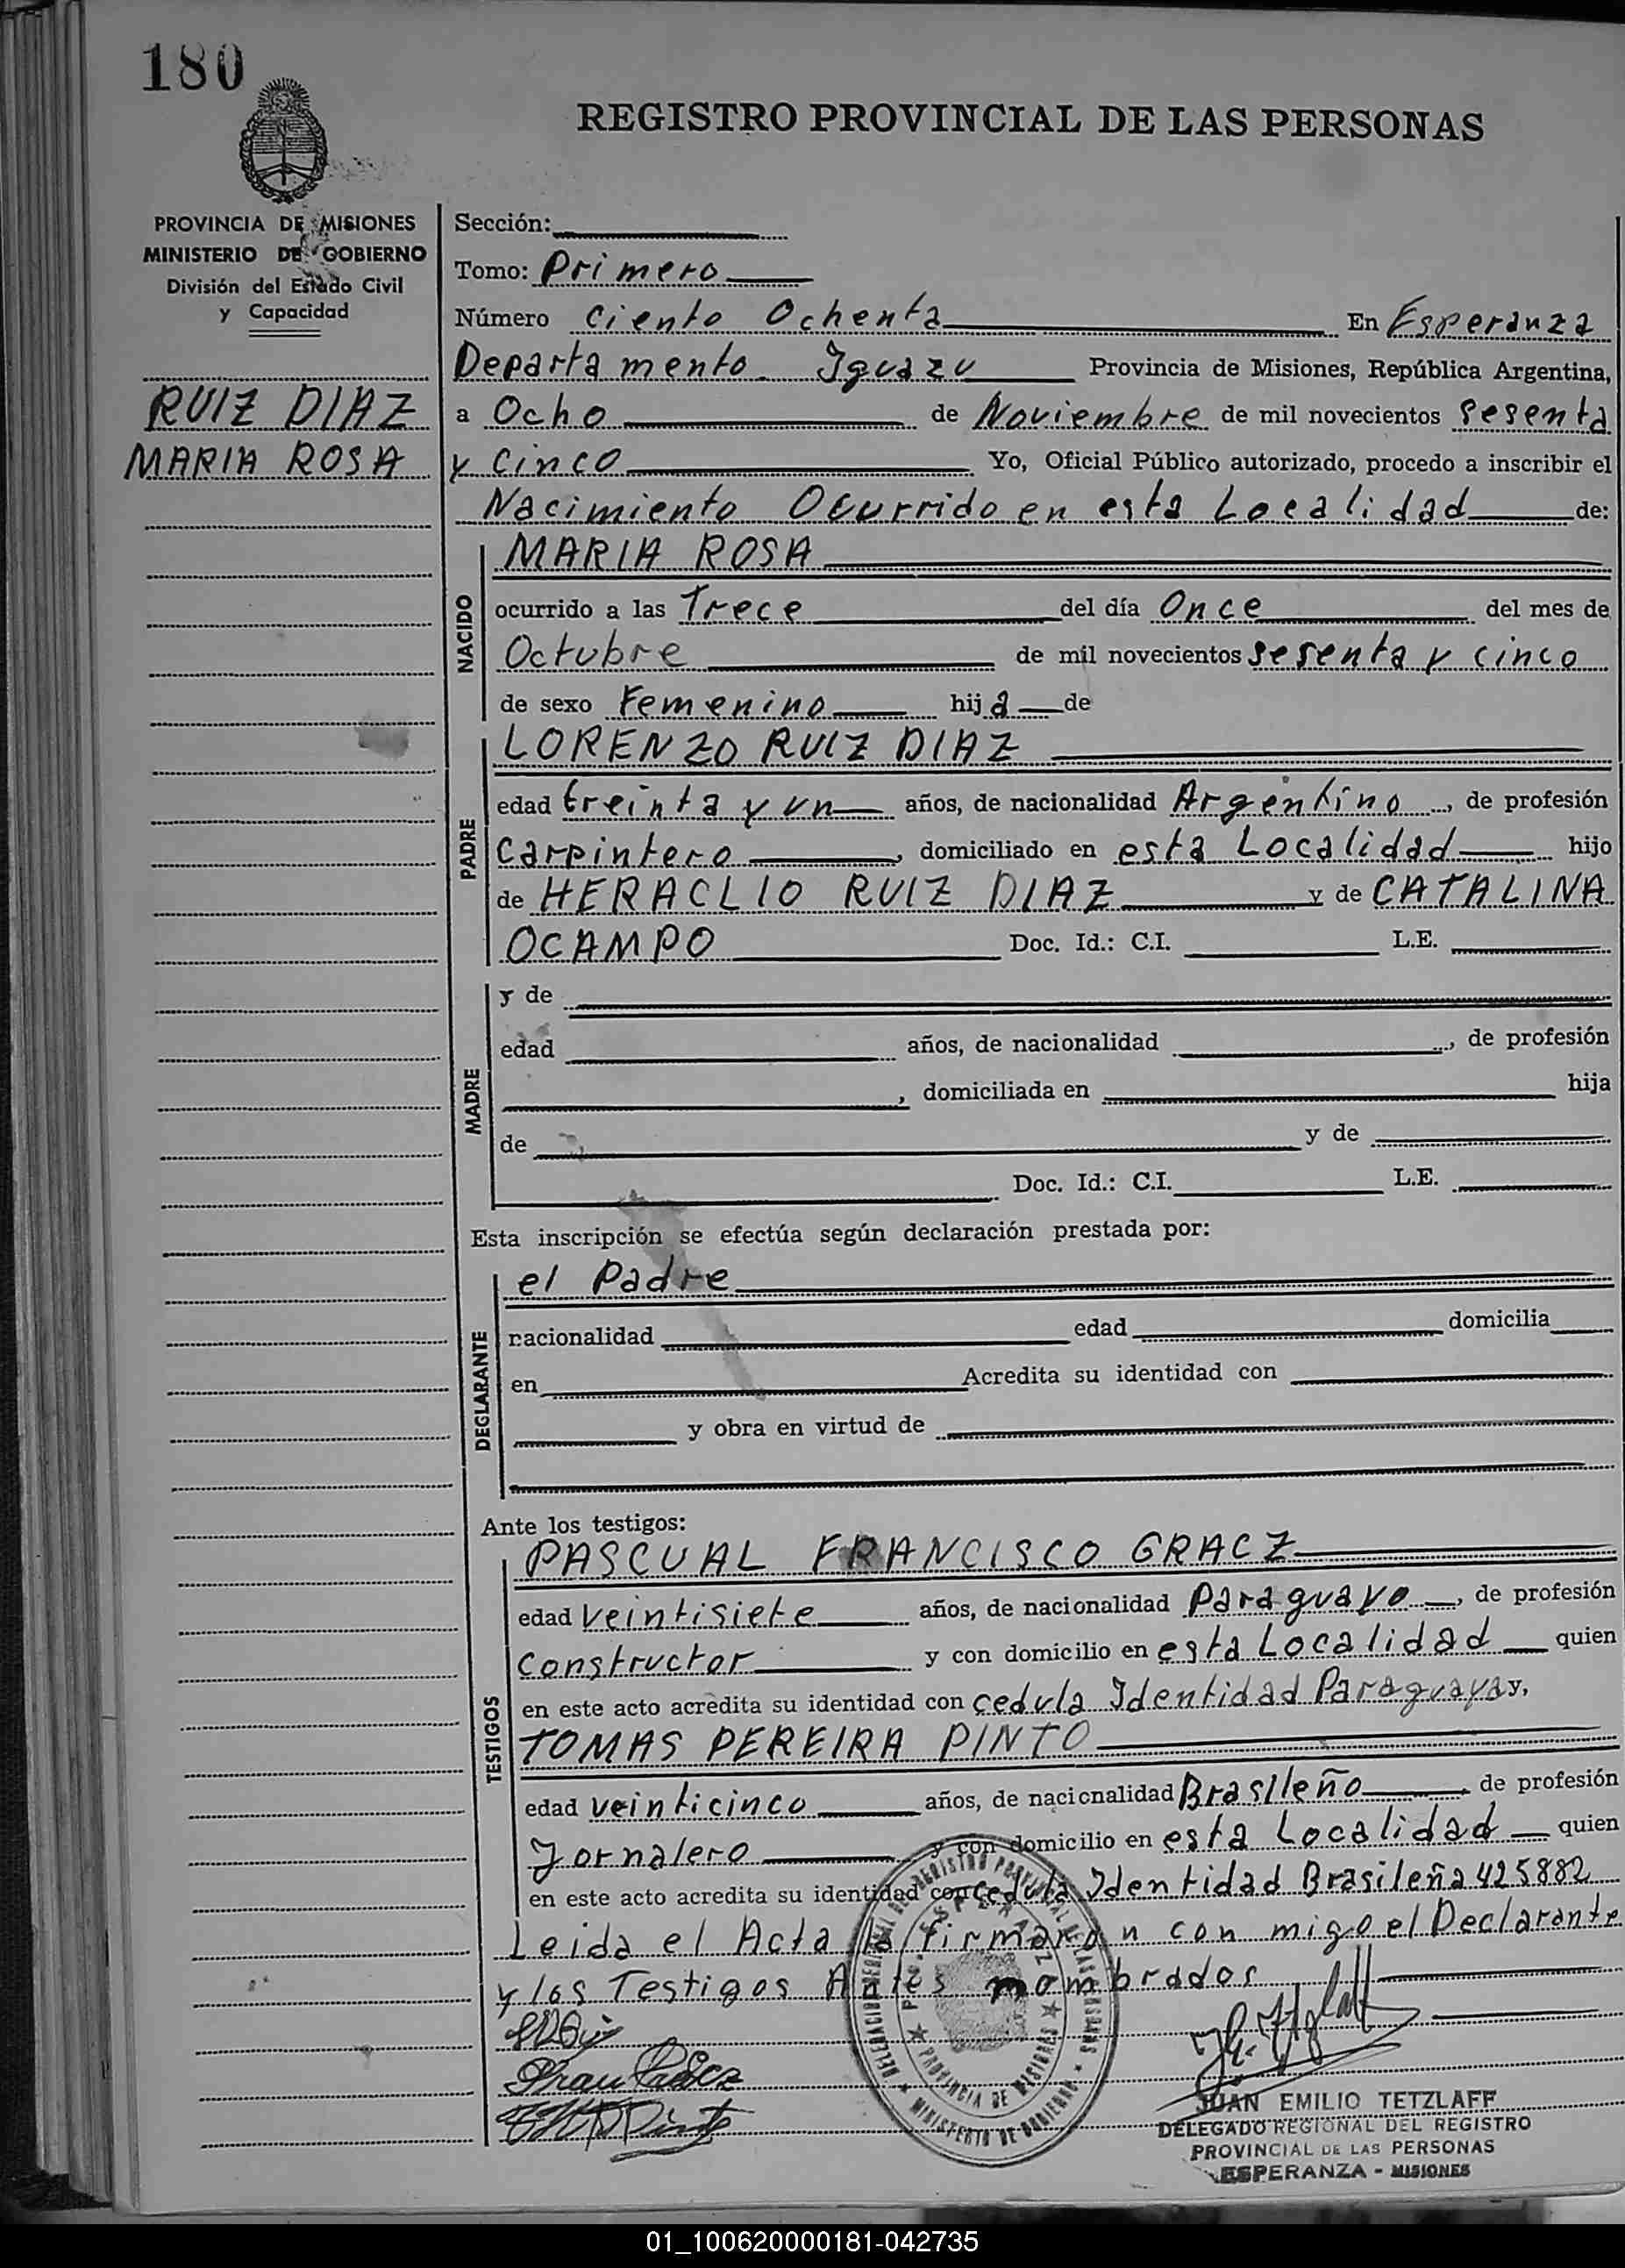 180
REGISTRO PROVINCIAL DE LAS PERSONAS
PROVINCIA DE MISIONES
MINISTERIO DE GOBIERNO
División del Estado Civil
y Capacidad
RUIZ DIAZ
MARIA ROSA
Sección:
Tomo: Primero
Número Ciento Ochenta En Esperanza
Departamento Iguazu Provincia de Misiones, República Argentina,
a Ocho de Noviembre de mil novecientos Sesenta
y Cinco Yo, Oficial Público autorizado, procedo a inscribir el
Nacimiento Ocurrido en esta Localidad de:
NACIDO
MARIA ROSA
ocurrido a las Trece del día Once del mes de
Octubre de mil novecientos Sesenta y cinco
de sexo Femenino hija de
PADRE
LORENZO RUIZ DIAZ
edad treinta y un años, de nacionalidad Argentino, de profesión
Carpintero, domiciliado en esta Localidad hijo
de HERACLIO RUIZ DIAZ y de CATALINA
OCAMPO Doc. Id.: C.I. L.E.
MADRE
y de
edad años, de nacionalidad , de profesión
, domiciliada en hija
de y de
Doc. Id.: C.I. L.E.
Esta inscripción se efectúa según declaración prestada por:
DEGLARANTE
el Padre
racionalidad edad domicilia
en Acredita su identidad con
y obra en virtud de
Ante los testigos:
TESTIGOS
PASCUAL FRANCISCO GRACZ
edad Veintisiete años, de nacionalidad Paraguayo, de profesión
Constructor y con domicilio en esta Localidad quien
en este acto acredita su identidad con cedula Identidad Paraguaya y,
TOMAS PEREIRA PINTO
edad veinticinco años, de nacicnalidad Brasileño, de profesión
Jornalero y con domicilio en esta Localidad quien
en este acto acredita su identidad con Cedula Identidad Brasileña 425882
Leida el Acta la firmaron con migo el Declarante
y los Testigos Antes nombrados
JUAN EMILIO TETZLAFF
DELEGADO REGIONAL DEL REGISTRO
PROVINCIAL DE LAS PERSONAS
ESPERANZA - MISIONES
PROVINCIA DE MISIONES
MINISTERIO DE GOBIERNO
01_100620000181-042735